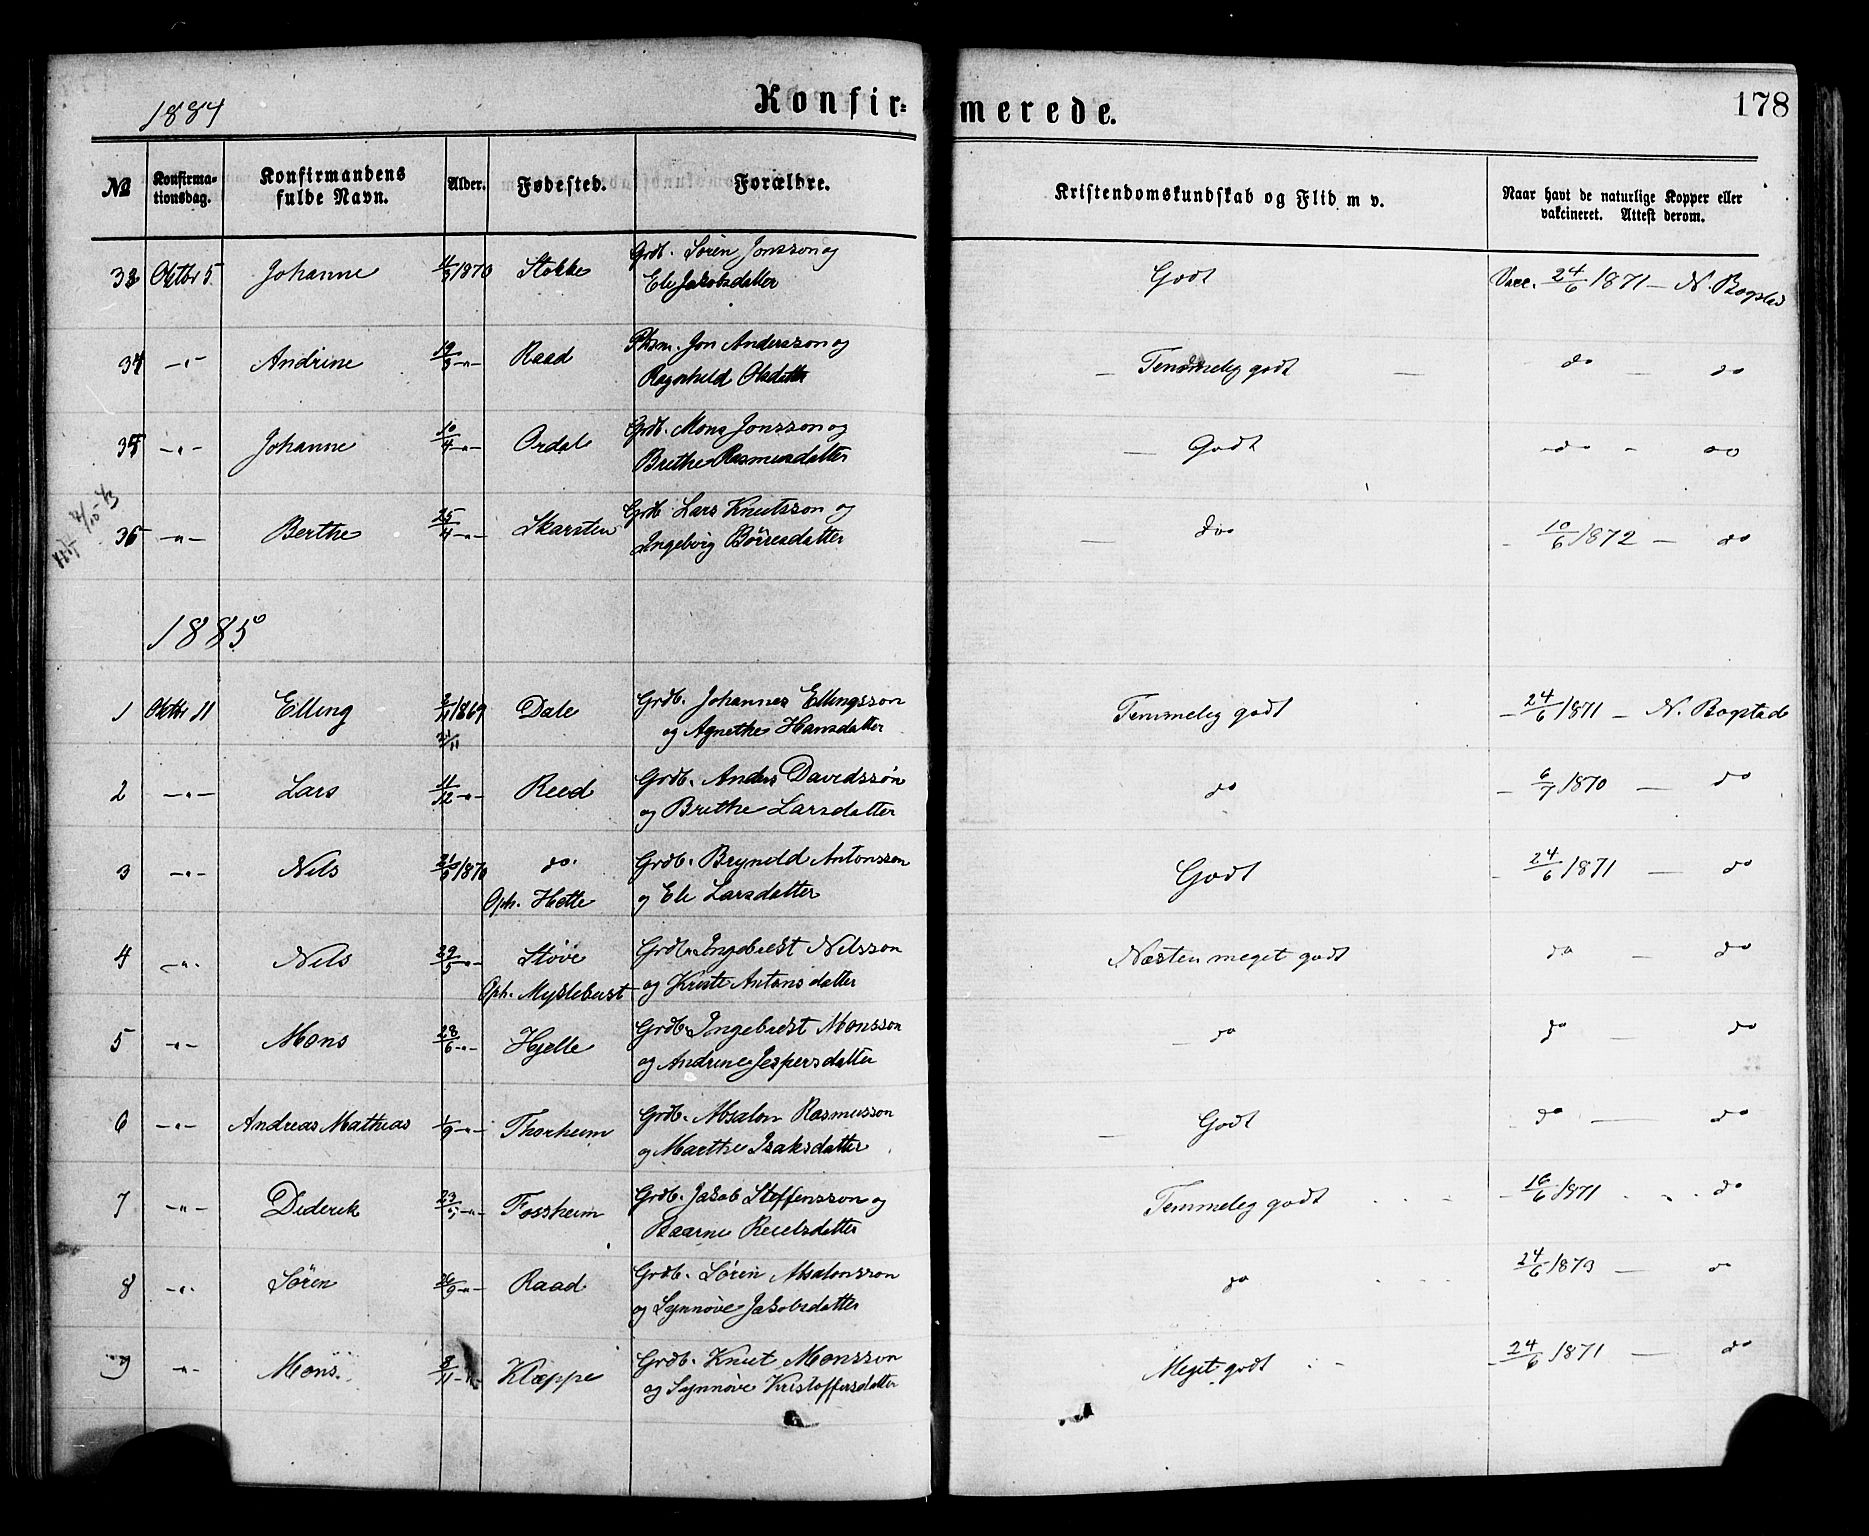 1884
Konfirmerede.
178
No
Konfirma-
tionsdag.
Konfirmandens
fulde Navn.
Alder.
Fødested.
Forældre.
Kristendomskundskab og Flid m v.
Naar havt de naturlige Kopper eller
vakcineret. Attest derom.
33 Oktbr 5. Johanne 1870 Stokke Grdb. Søren Jonsson og Godt Vacc. 24/6 1871 — N. Bogstad
Eli Jakobsdatter
34 -"- Andrine -"- Raad Plsm. Jon Andersson og — Temmelig godt — do — do
Ragnhild Olsdatter
35 -"- Johanne 10/4 -"- Ordal Grdb. Mons Jonsson og — Godt - do - do
Brithe Rasmusdatter
36 -"- Berthe 25/4 -"- Skarsten Grdb. Lars Knutsson og — do - 10/6 1872 — do
Ingeborg Børresdatter
1885
1 Oktbr 11 Elling 1869 Dale Grdb. Johannes Ellingsson Temmelig godt - 24/6 1871 — N. Bogstad
21/11 og Agnethe Hansdatter
2 -"- Lars 11/12 -"- Reed Grdb. Anders Davidssøn do - 6/7 1870 — do
og Brithe Larsdatter
3 -"- Nils 1870 do. Grdb. Brynild Antonsson Godt - 24/6 1871 — do
Oph. Hette og Eli Larsdatter
4 -"- Nils 29/5 -"- Støve Grdb. Ingebrigt Nilsson Næsten meget godt do — do
Oph. Myklebust og Kristi Antonsdatter
5 -"- Mons 28/6 -"- Hjelle Grdb. Ingebrigt Monsson — do do — do
og Andrine Jespersdatter
6 -"- Andreas Mathias 1/9 -"- Thorheim Grdb. Absalon Rasmusson — Godt do — do
og Marthe Isaksdatter
7 -"- Diderik -"- Fossheim Grdb. Jakob Steffensson og Temmelig godt - 16/6 1871 - do
Baarni Reielsdatter
8 -"- Søren 26/9 -"- Raad Grdb. Søren Absalonsson do 24/6 1873 — do
og Synnøve Jakobsdatter
9 -"- Mons 8/11 -"- Kleppe Grdb. Knut Monsson Meget godt - 24/6 1871 — do
og Synnøve Kristoffersdatter